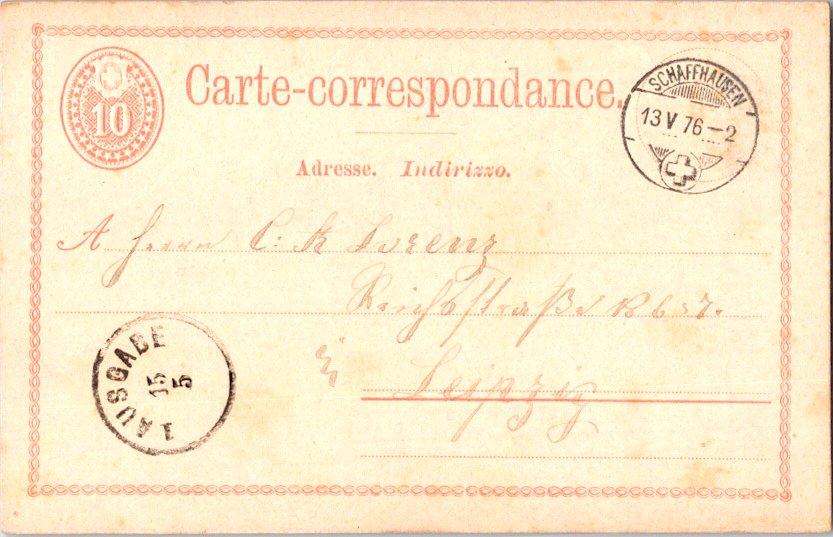 Carte-correspondance.
10
SCHAFFHAUSEN
13 V 76–2
Adresse. Indirizzo.
Herrn C. K Lorenz
Reichsstraße
Leipzig
1 AUSGABE
15
5